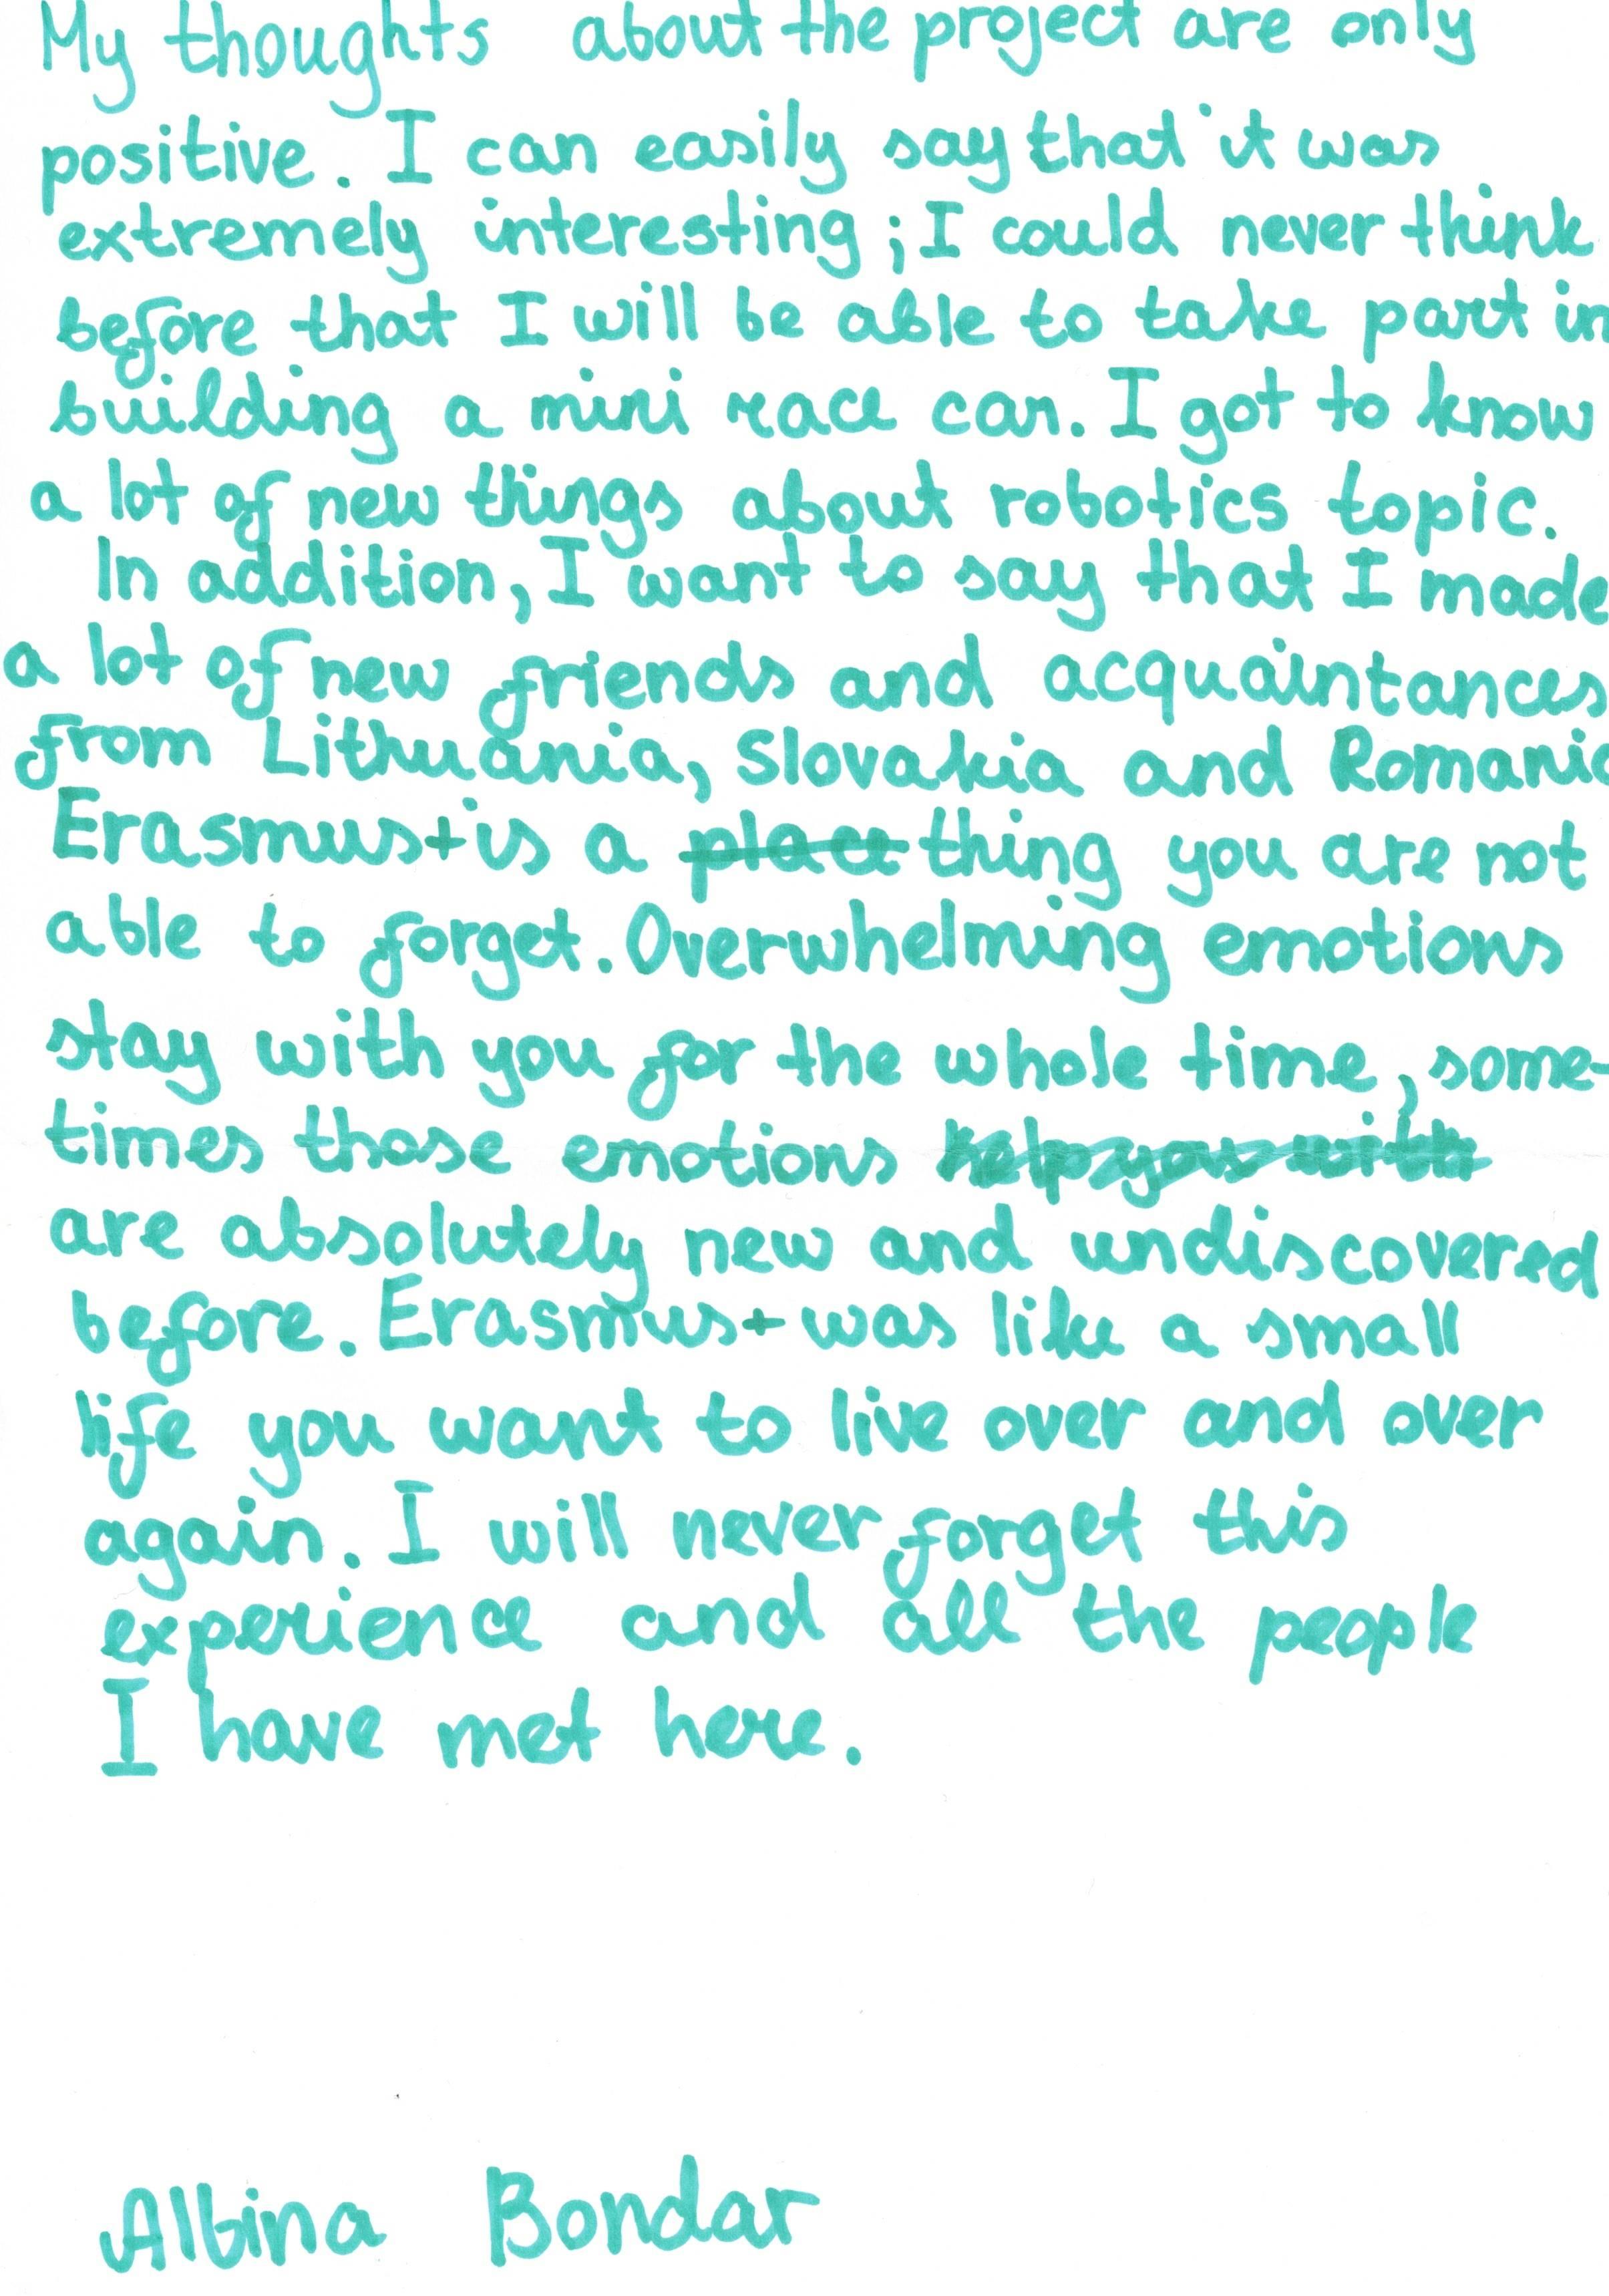 My thoughts about the project are only
positive. I can easily say that it was
extremely interesting; I could never think
before that I will be able to take part in
building a mini race car. I got to know
a lot of new things about robotics topic.
In addition, I want to say that I made
a lot of new friends and acquaintances
from Lithuania, Slovakia and Romania
Erasmus+ is a place thing you are not
able to forget. Overwhelming emotions
stay with you for the whole time, some-
times those emotions help you with
are absolutely new and undiscovered
before. Erasmus+ was like a small
life you want to live over and over
again. I will never forget this
experience and all the people
I have met here.
Albina Bondar